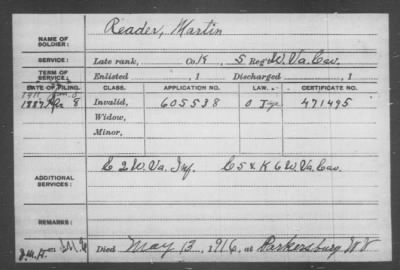 NAME OF SOLDIER: Reader, Martin
SERVICE: Late rank, Co. K, 5 Reg't W. Va. Cav.
TERM OF SERVICE: Enlisted , 1 Discharged , 1
DATE OF FILING. CLASS. APPLICATION NO. LAW. CERTIFICATE NO.
1887 Apr 8 Invalid, 605538 471495
Widow,
Minor,
ADDITIONAL SERVICES: C 2 W. Va. Inf. C 5 & K 6 W. Va. Cav.
REMARKS:
Died May 13, 1916, at Parkersburg W V